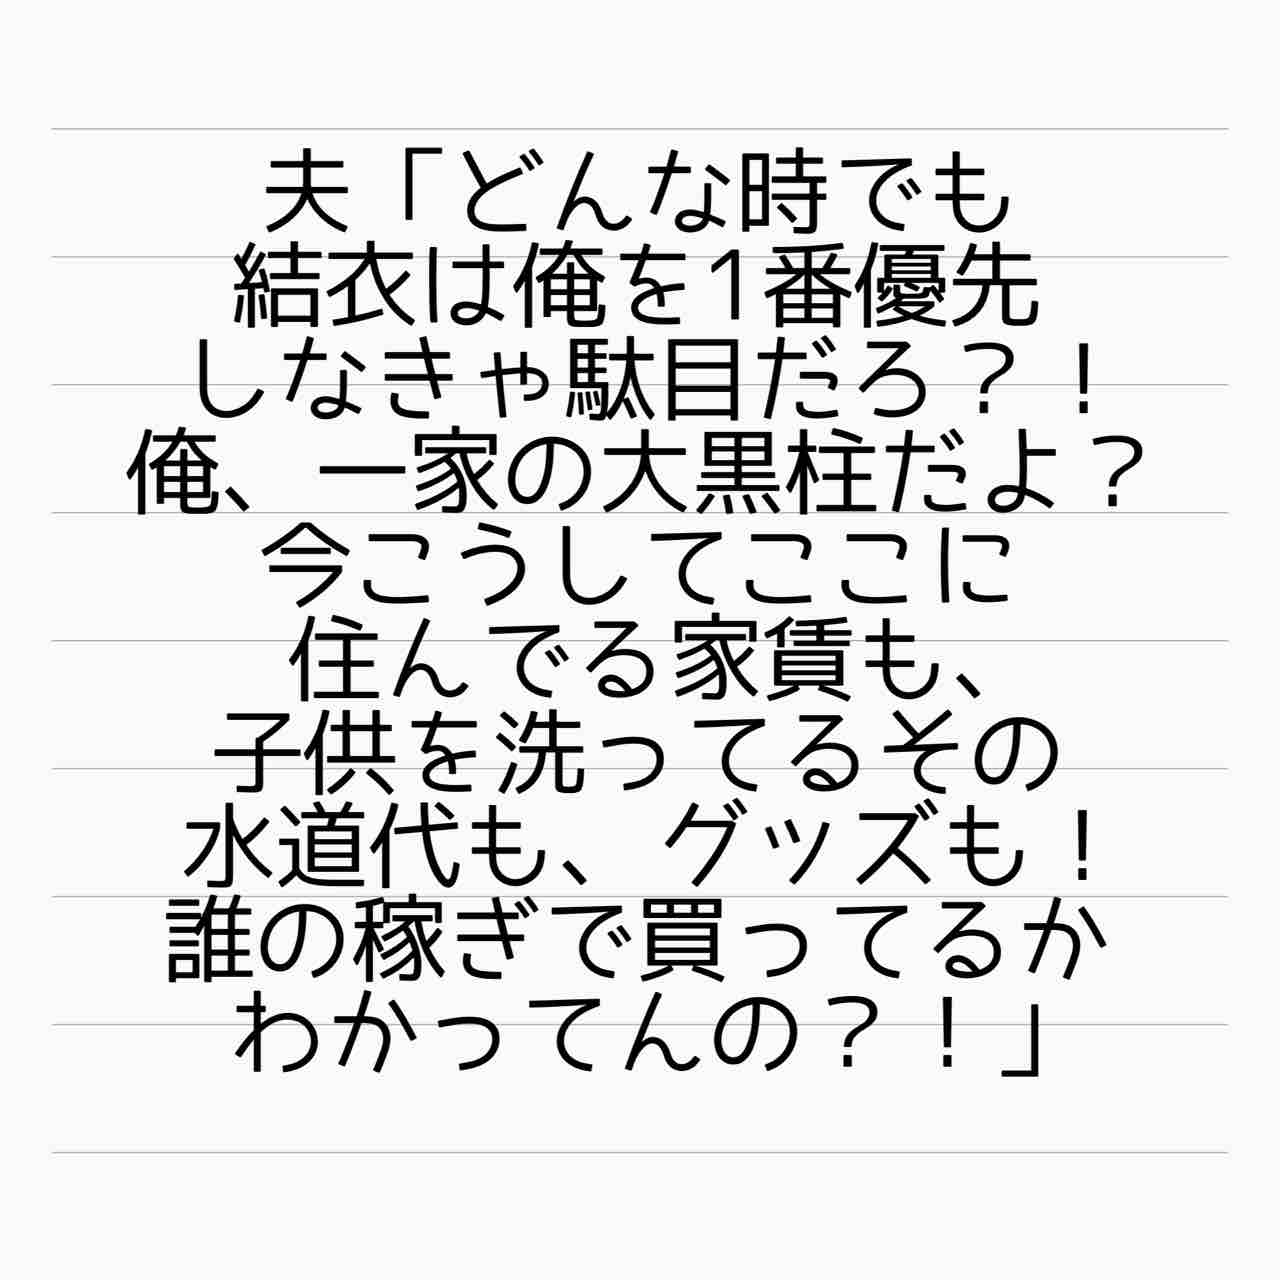 夫「どんな時でも
結衣は俺を1番優先
しなきゃ駄目だろ？！
俺、一家の大黒柱だよ？
今こうしてここに
住んでる家賃も、
子供を洗ってるその
水道代も、グッズも！
誰の稼ぎで買ってるか
わかってんの？！」